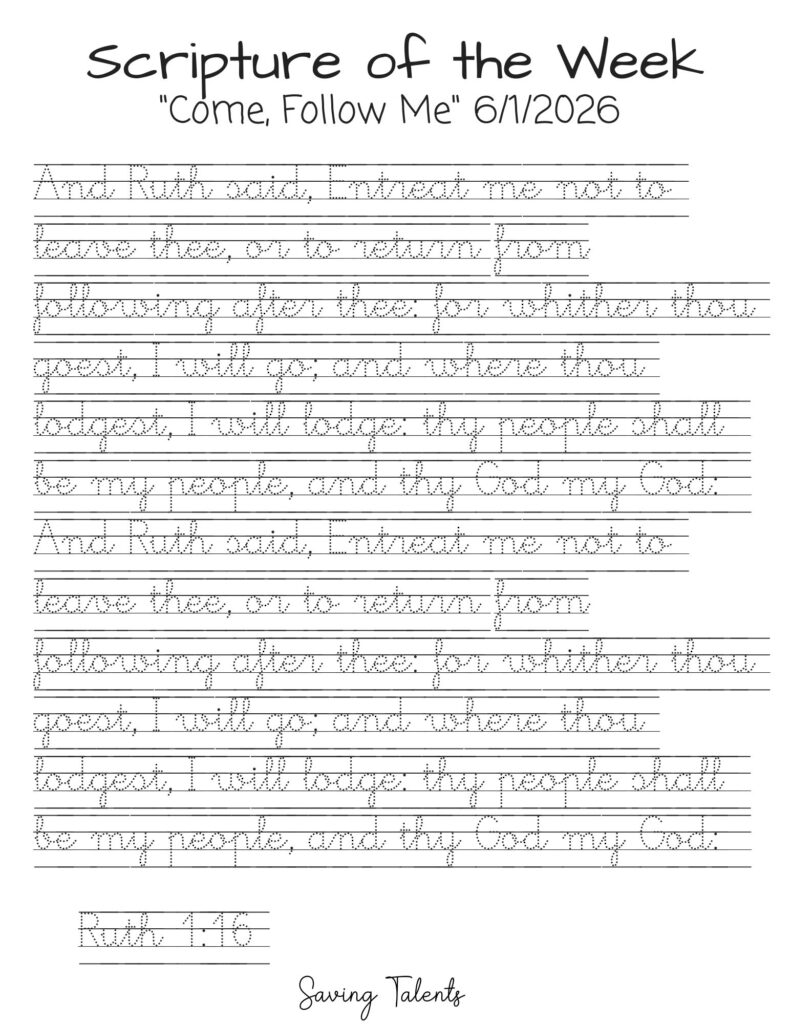 Scripture of the Week
"Come, Follow Me" 6/1/2026
And Ruth said, Entreat me not to
leave thee, or to return from
following after thee: for whither thou
goest, I will go; and where thou
lodgest, I will lodge: thy people shall
be my people, and thy God my God:
And Ruth said, Entreat me not to
leave thee, or to return from
following after thee: for whither thou
goest, I will go; and where thou
lodgest, I will lodge: thy people shall
be my people, and thy God my God:
Ruth 1:16
Saving Talents